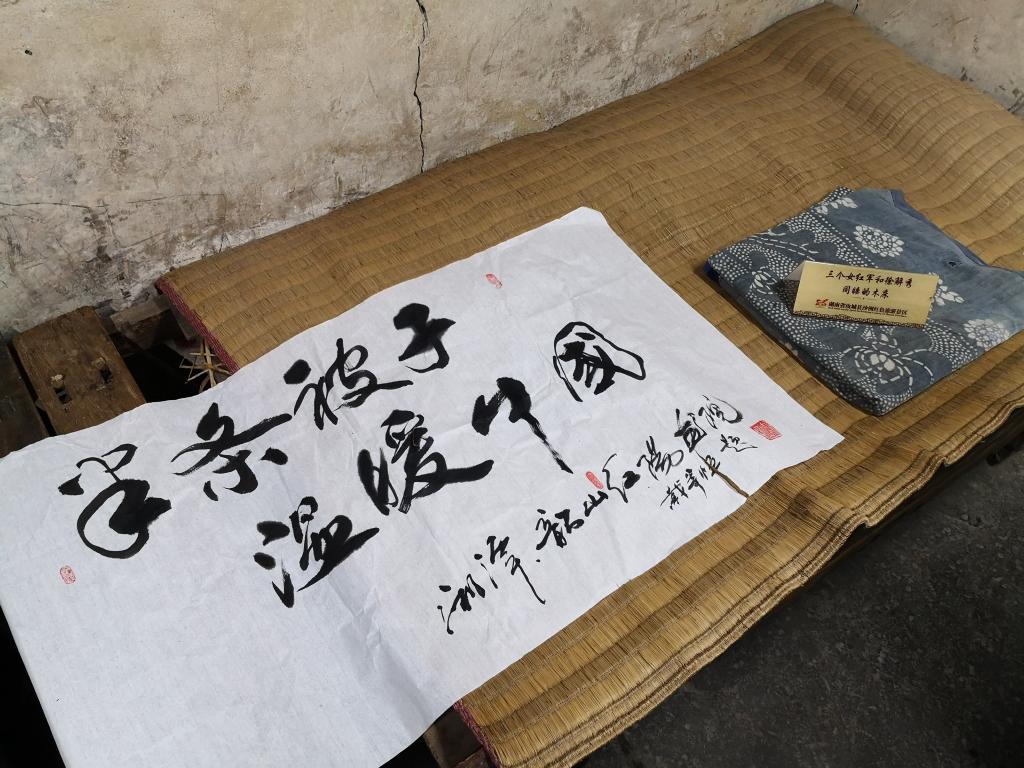 半条被子
温暖中国
湘潭韶山红阳画院
题
三个女红军和徐解秀
同睡的木床
湖南省汝城县沙洲红色旅游景区